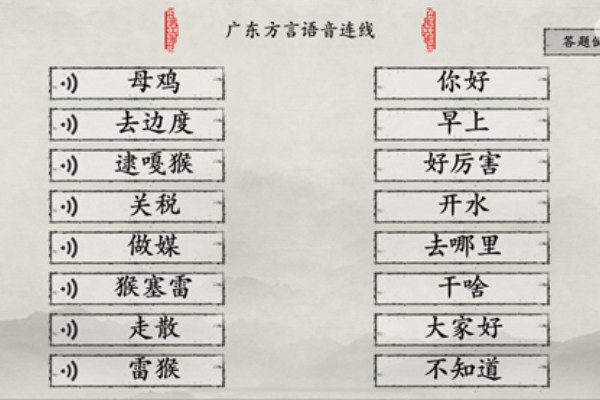 广东方言语音连线
答题
母鸡
你好
去边度
早上
逮嘎猴
好厉害
关税
开水
做媒
去哪里
猴塞雷
干啥
走散
大家好
雷猴
不知道